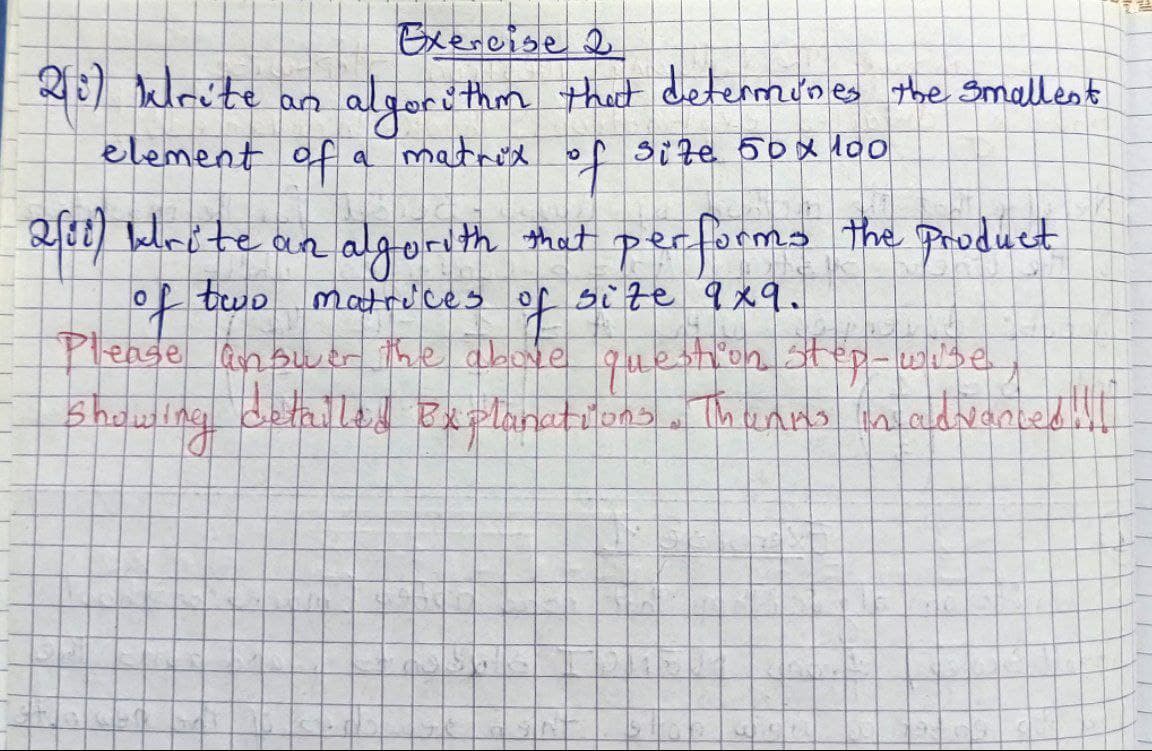 Exercise 2
2(i) Write an algorithm that determines the smallest
element of a matrix of size 50 x 100
2(ii) Write an algorith that performs the product
of two matrices of size 9x9.
Please answer the above question step-wise,
showing detailed Explanations. Thanns in advanced!!!